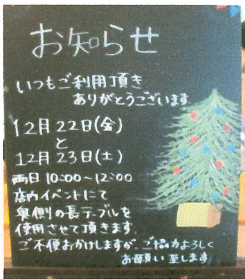 お知らせ
いつもご利用頂き
ありがとうございます
12月22日(金)
と
12月23日(土)
両日10:00~12:00
店内イベントにて
奥側の長テーブルを
使用させて頂きます。
ご不便おかけしますが、ご協力よろしく
お願い致します。